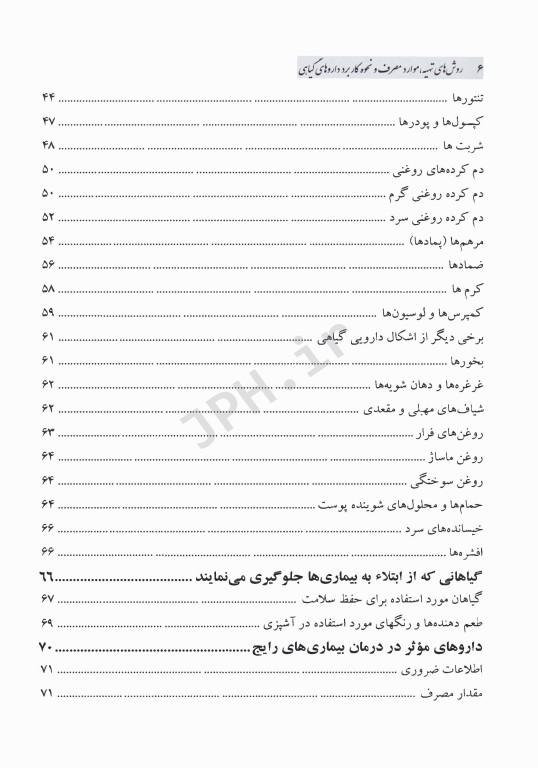 ۶ روش‌های تهیه، موارد مصرف و نحوه کاربرد داروهای گیاهی
تنتورها ........................................ ۴۴
کپسول‌ها و پودرها ........................................ ۴۷
شربت ها ........................................ ۴۸
دم کرده‌های روغنی ........................................ ۵۰
دم کرده روغنی گرم ........................................ ۵۰
دم کرده روغنی سرد ........................................ ۵۲
مرهم‌ها (پمادها) ........................................ ۵۴
ضمادها ........................................ ۵۶
کرم ها ........................................ ۵۸
کمپرس‌ها و لوسیون‌ها ........................................ ۵۹
برخی دیگر از اشکال دارویی گیاهی ........................................ ۶۱
بخورها ........................................ ۶۱
غرغره‌ها و دهان شویه‌ها ........................................ ۶۲
شیاف‌های مهبلی و مقعدی ........................................ ۶۲
روغن‌های فرار ........................................ ۶۳
روغن ماساژ ........................................ ۶۴
روغن سوختگی ........................................ ۶۴
حمام‌ها و محلول‌های شوینده پوست ........................................ ۶۴
خیسانده‌های سرد ........................................ ۶۶
افشره‌ها ........................................ ۶۶
گیاهانی که از ابتلاء به بیماری‌ها جلوگیری می‌نمایند ........................................ ۶۶
گیاهان مورد استفاده برای حفظ سلامت ........................................ ۶۷
طعم دهنده‌ها و رنگهای مورد استفاده در آشپزی ........................................ ۶۹
داروهای مؤثر در درمان بیماری‌های رایج ........................................ ۷۰
اطلاعات ضروری ........................................ ۷۱
مقدار مصرف ........................................ ۷۱
JPH.ir